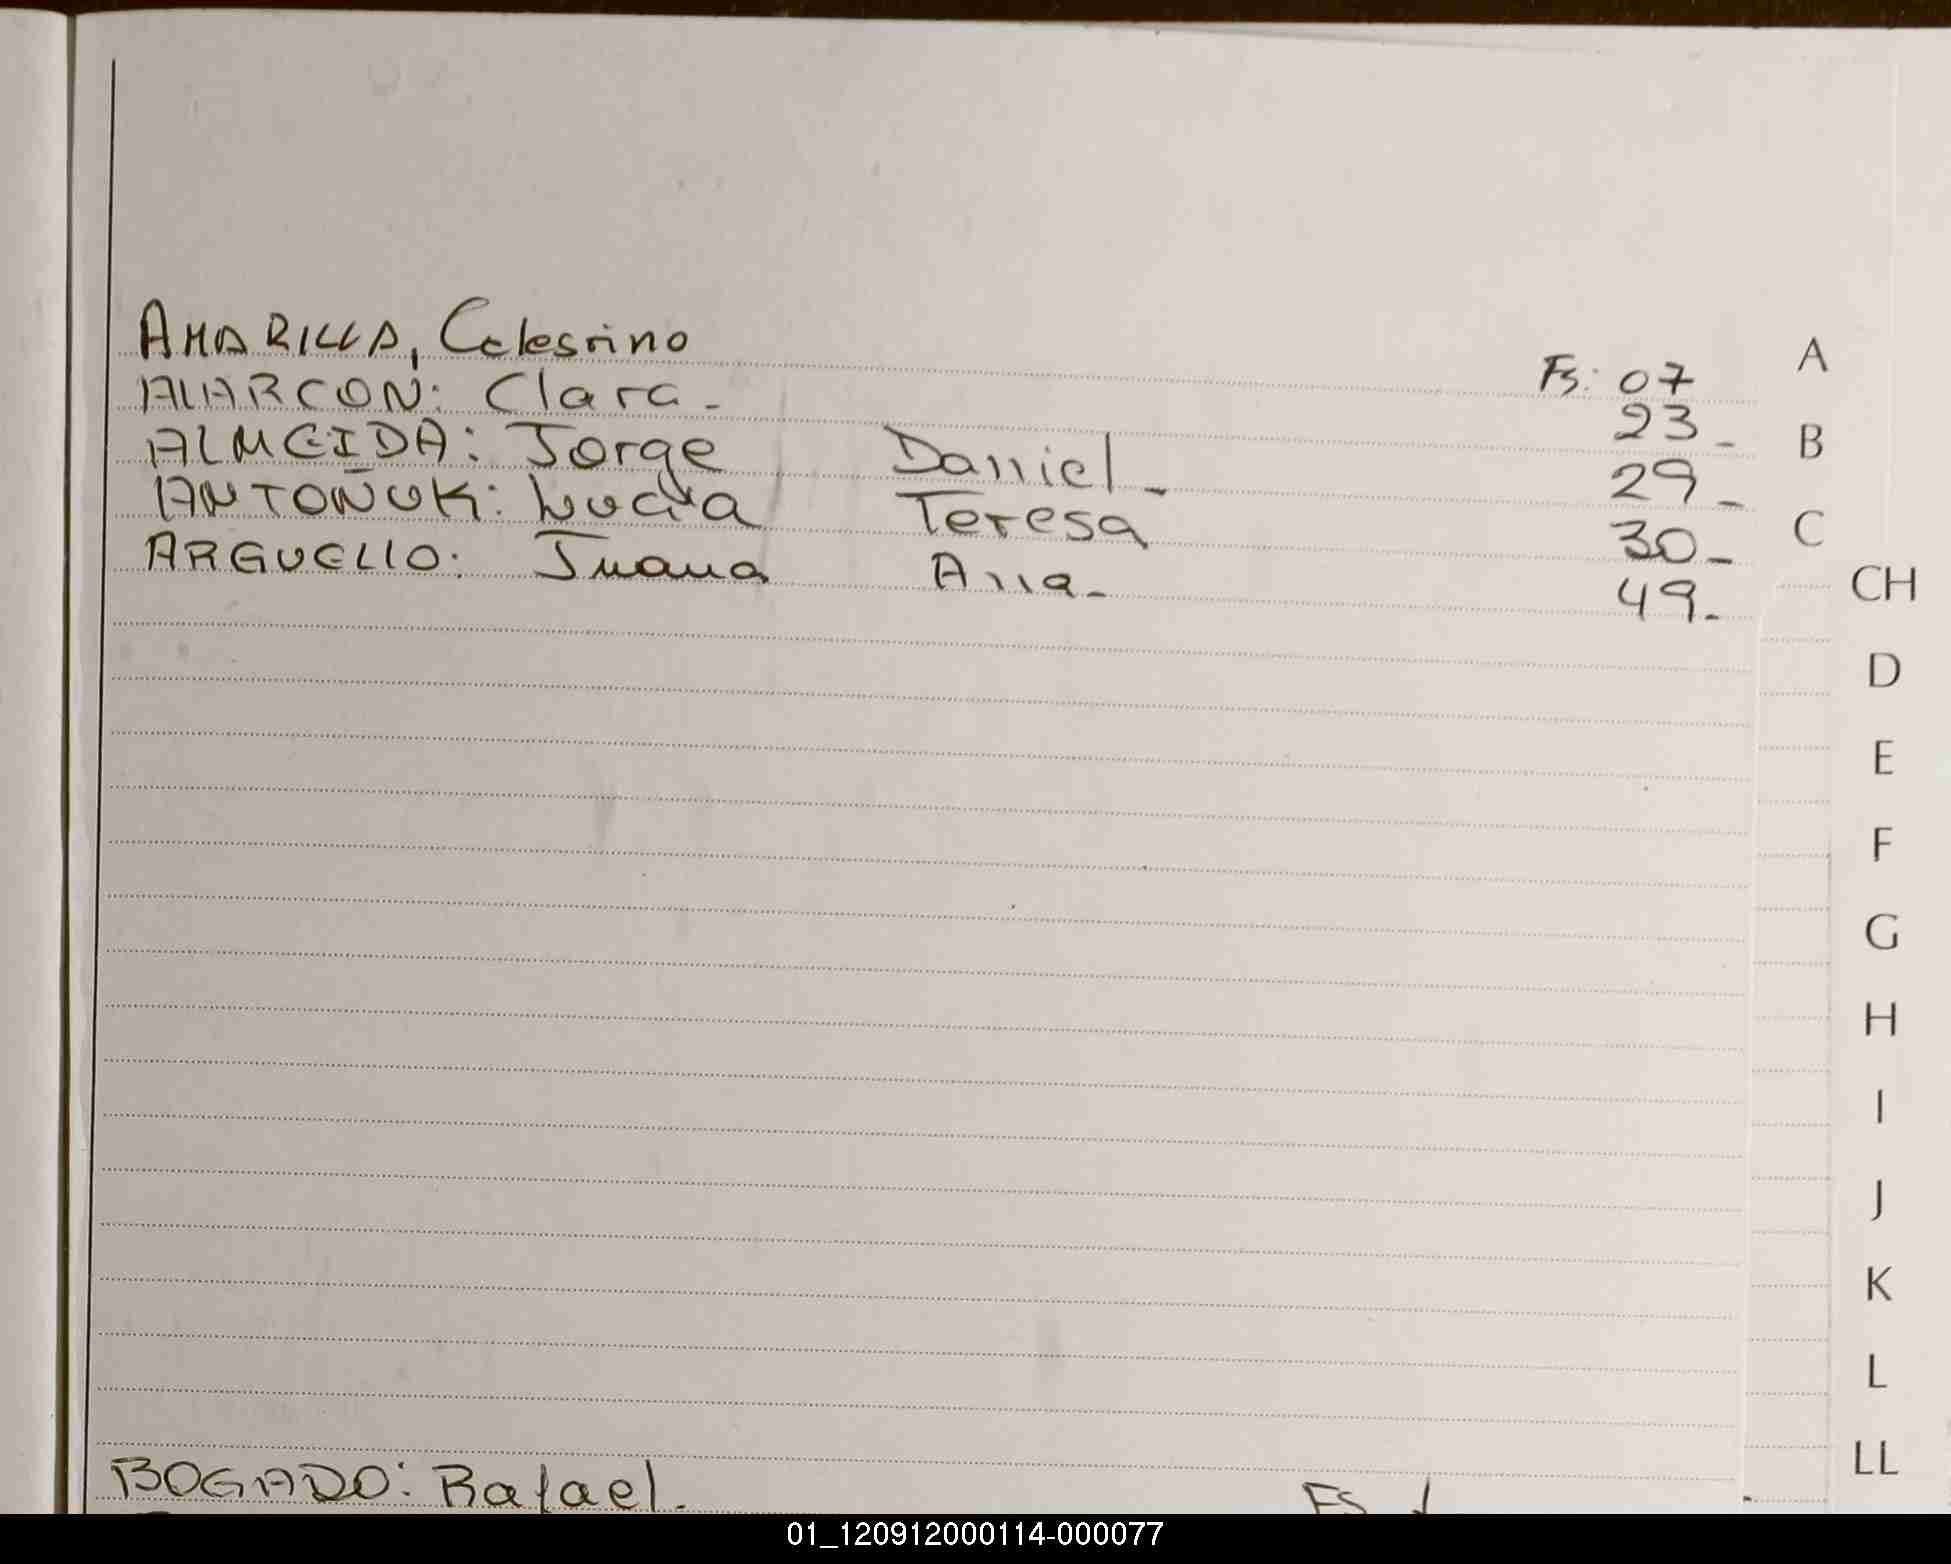 AMARILLA, Celestino Fs: 07
ALARCON: Clara - 23 -
ALMEIDA: Jorge Daniel - 29 -
ANTOÑUK: Lucia Teresa 30 -
ARGUELLO: Juana Ana - 49 -
A
B
C
CH
D
E
F
G
H
I
J
K
L
LL
BOGADO: Rafael. Fs
01_120912000114-000077